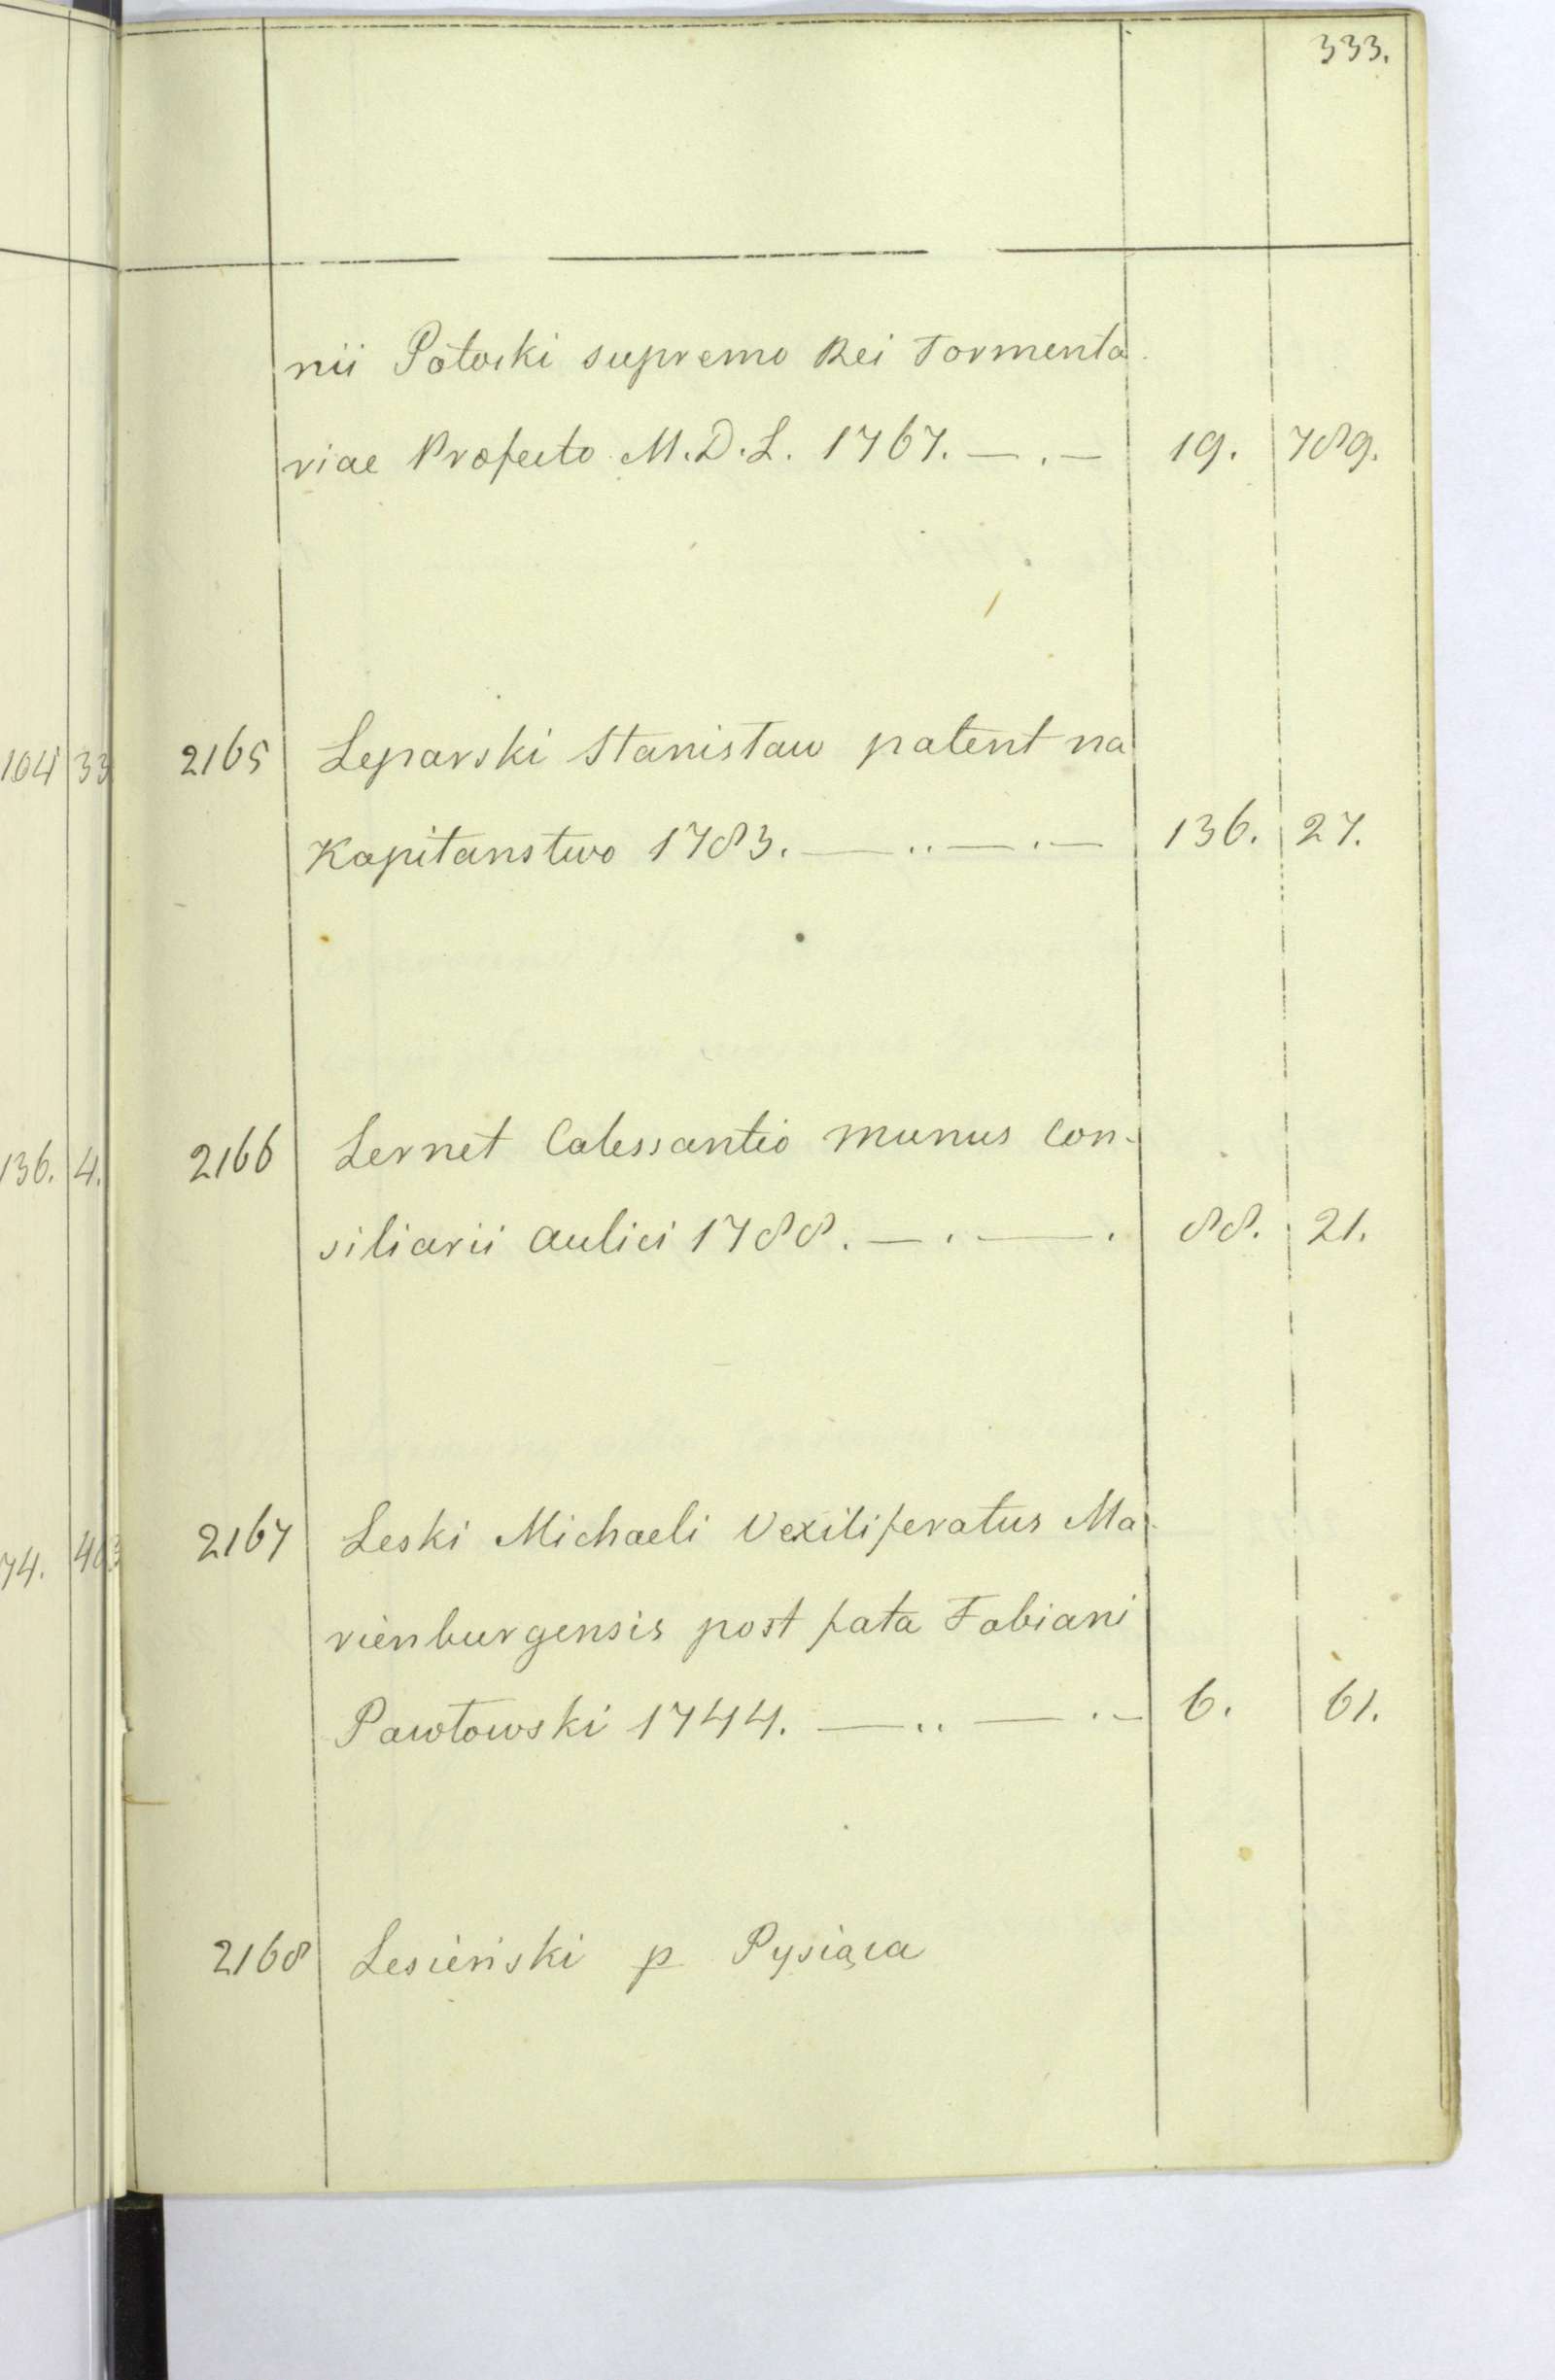 333.
nii Potocki supremo Rei Tormenta-
riae Profecto M.D.L. 1767. — . — 19. 789.
2165 Leparski Stanisław patent na
Kapitanstwo 1783. — .. — . — 136. 27.
2166 Lernet Calessantio munus Con-
siliarii Aulici 1788. — . — . 88. 21.
2167 Leski Michaeli Vexiliferatus Ma-
rienburgensis post fata Fabiani
Pawłowski 1744. — .. — . — 6. 61.
2168 Lesieński p Pysiąca
104 33
136. 4.
74.